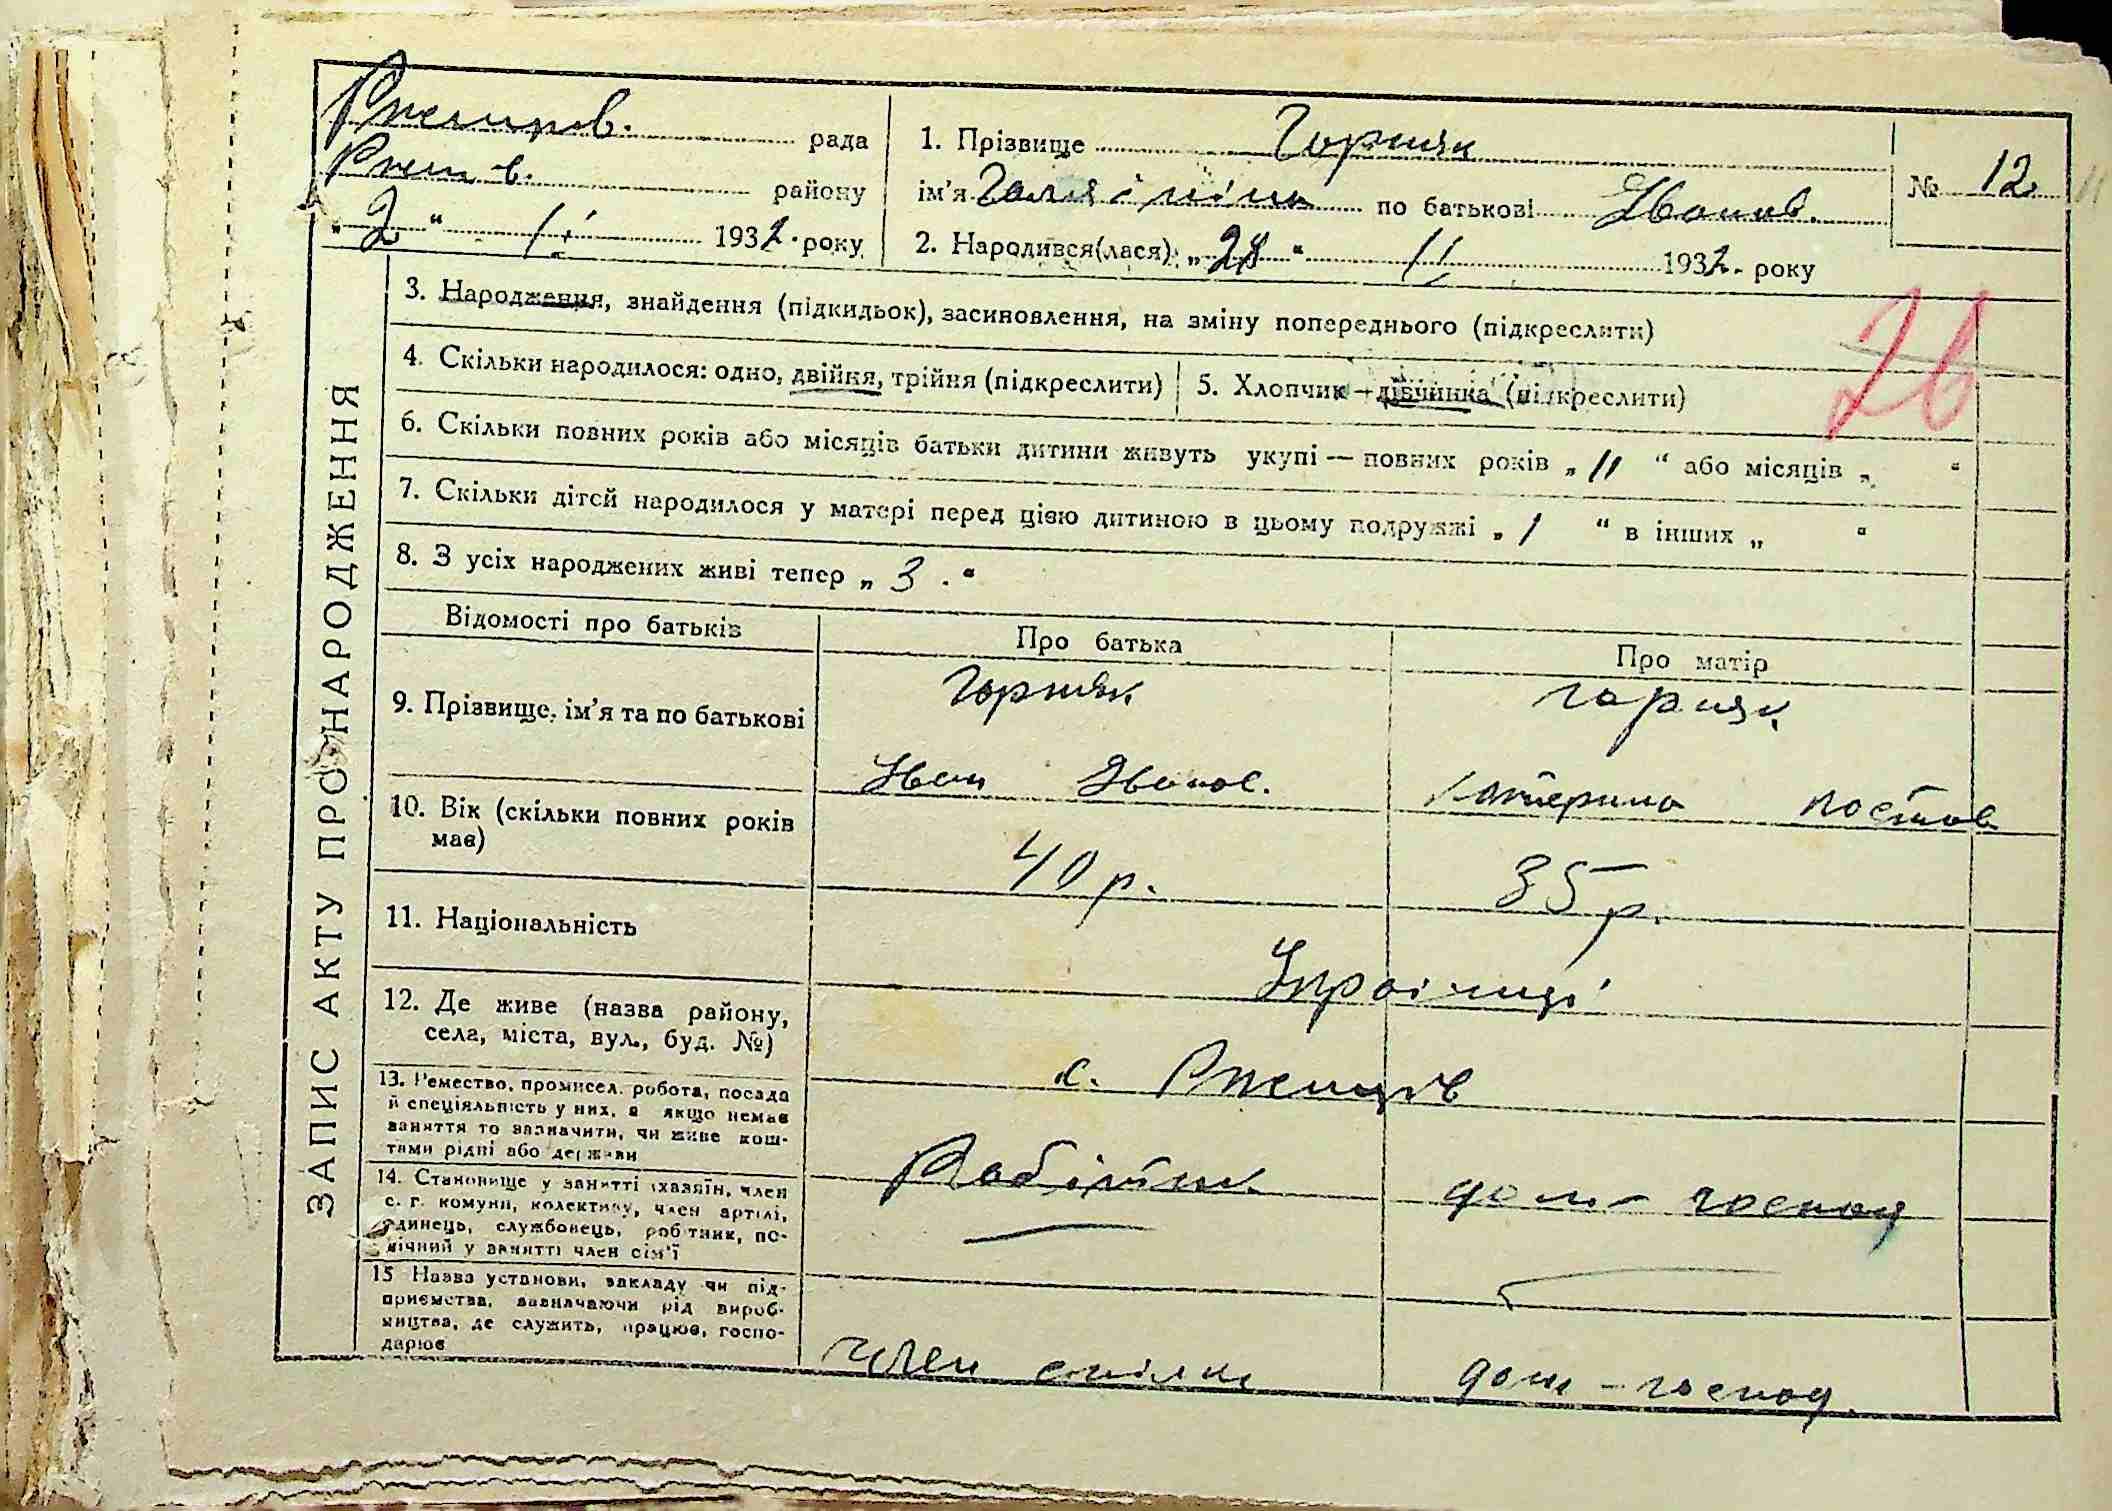 Ржищов. рада
Ржищ в. району
„ 2 “ II 1932. року
1. Прізвище Горняк
ім'я Галя і Ніна по батькові Іванов.
№ 12
2. Народився(лася) „ 28 “ II 1932. року
3. Народження, знайдення (підкидьок), засиновлення, на зміну попереднього (підкреслити)
26
4. Скільки народилося: одно, двійня, трійня (підкреслити)
5. Хлопчик — дівчинка (підкреслити)
6. Скільки повних років або місяців батьки дитини живуть укупі — повних років „ 11 “ або місяців „ “
7. Скільки дітей народилося у матері перед цією дитиною в цьому подружжі „ 1 “ в інших „ “
8. З усіх народжених живі тепер „ 3 . “
ЗАПИС АКТУ ПРО НАРОДЖЕННЯ
Відомості про батьків
Про батька
Про матір
9. Прізвище, ім'я та по батькові
Горняк
Іван Іванов.
Горняк
Катерина Костов
10. Вік (скільки повних років
має)
40 р.
35 р.
11. Національність
Українці
12. Де живе (назва району,
села, міста, вул., буд. №)
с. Ржищів
13. Ремество, промисел, робота, посада
й спеціяльність у них, а якщо немає
заняття то зазначити, чи живе кош-
тами рідні або держави
Робітник
дом - господ
14. Становище у занятті (хазяїн, член
с. г. комуни, колективу, член артілі,
одинець, службовець, робітник, по-
мічний у занятті член сім'ї
15 Назва установи, закладу чи під-
приємства, зазначаючи рід вироб-
ництва, де служить, працює, госпо-
дарює
член спілки
дом - господ.